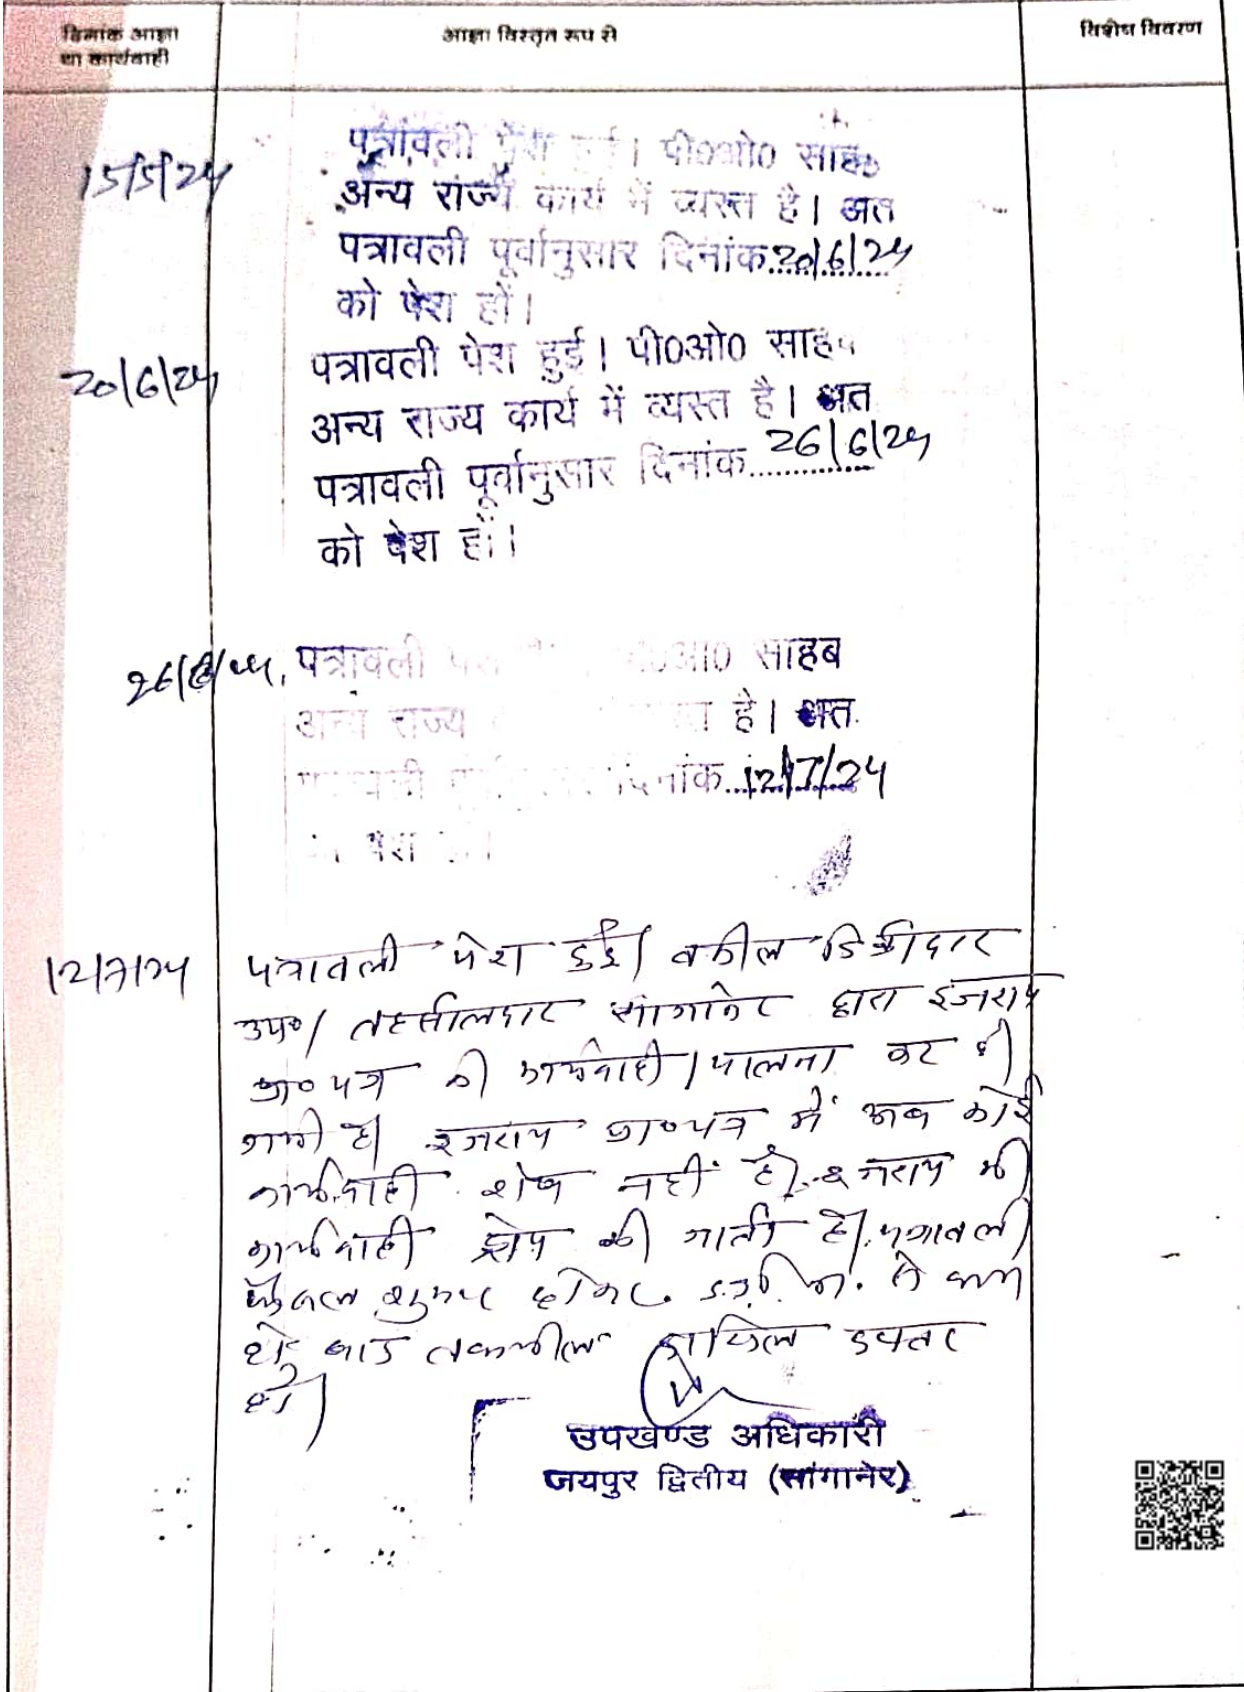 दिनांक आज्ञा
या कार्यवाही
आज्ञा विस्तृत रूप से
विशेष विवरण
15/5/24
पत्रावली पेश हुई। पी0ओ0 साहब
अन्य राज्य कार्य में व्यस्त है। अत
पत्रावली पूर्वानुसार दिनांक..20/6/24
को पेश हों।
20/6/24
पत्रावली पेश हुई। पी0ओ0 साहब
अन्य राज्य कार्य में व्यस्त है। अत
पत्रावली पूर्वानुसार दिनांक..26/6/24
को पेश हों।
26/6/24
पत्रावली पेश पी0ओ0 साहब
अन्य राज्य है। अत
दिनांक..12/7/24
पेश
12/7/24
पत्रावली पेश हुई। वकील डिक्रीदार
उप०। तहसीलदार सांगानेर द्वारा इजराय
प्रा०पत्र की कार्यवाही/पालना कर दी
गयी है। इजराय प्रा०पत्र में अब कोई
कार्यवाही शेष नहीं है। इजराय की
कार्यवाही की जाती है। पत्रावली
फैसल शुमार होकर से कम
हो, बाद तकमील दाखिल दफ्तर
हो।
उपखण्ड अधिकारी
जयपुर द्वितीय (सांगानेर)